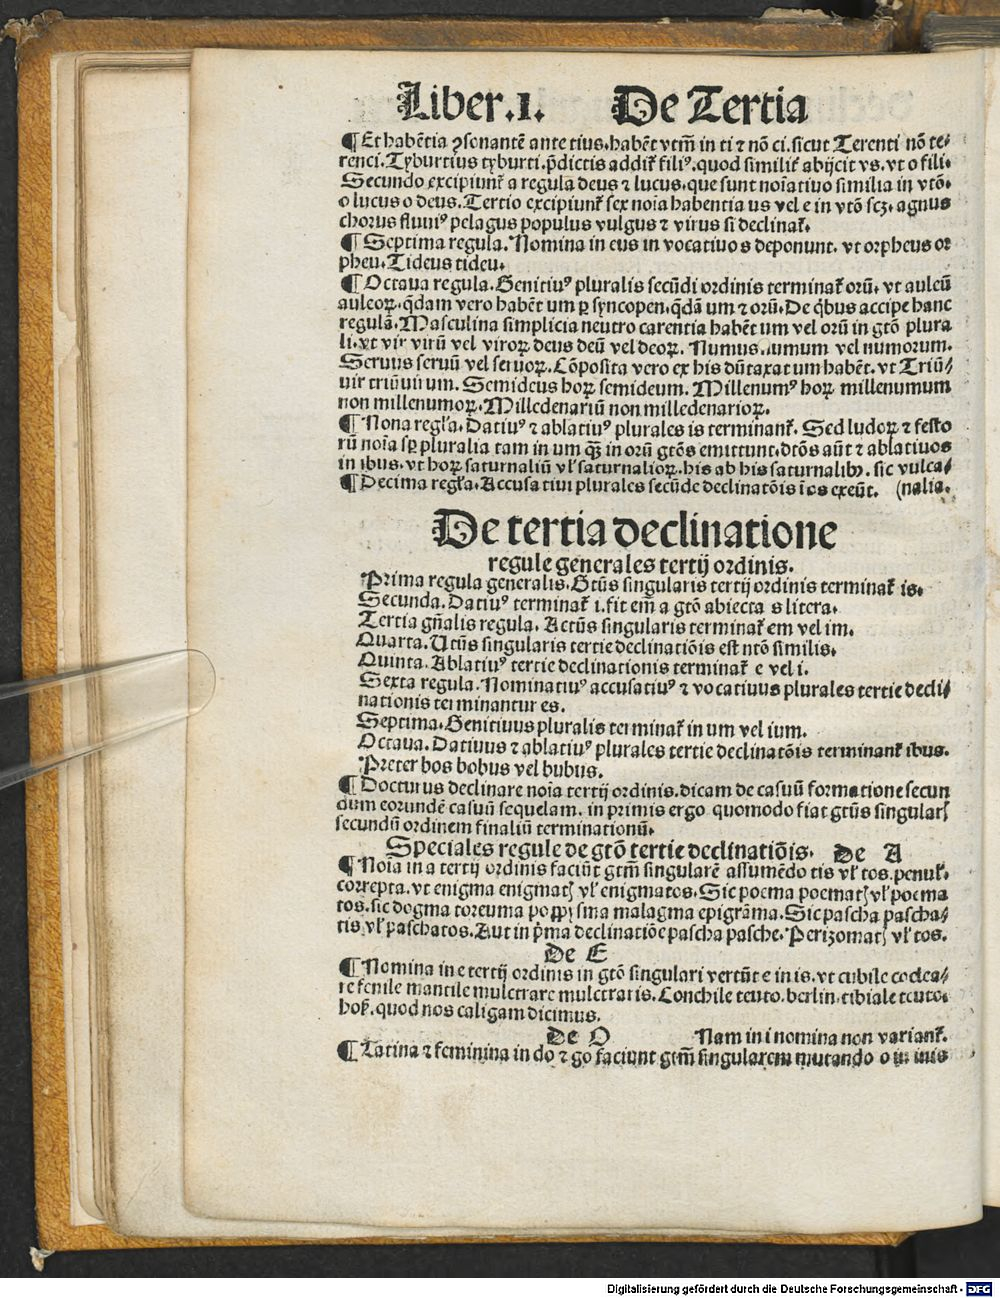 Liber.1. De Tertia
¶ Et habẽtia ꝯsonantẽ ante tius.habẽt vtm̃ in ti ⁊ nõ ci.sicut Terenti nõ te⸗
renci.Tyburtius tyburti.p̃dictis addit̃ filiꝰ.quod similit̃ abijcit vs.vt o fili.
Secundo excipiunt̃ a regula deus ⁊ lucus.que sunt noĩatiuo similia in vtõ.
o lucus o deus.Tertio excipiunt̃ sex noĩa habentia us vel e in vtõ scꝫ.agnus
chorus fluuiꝰ pelagus populus vulgus ⁊ virus si declinat̃.
¶ Septima regula.Nomina in eus in vocatiuo s deponunt. vt orpheus or
pheu.Tideus tideu.
¶ Octaua regula.Genitiuꝰ pluralis secũdi ordinis terminat̃ orũ. vt auleũ
auleoꝝ.q̃dam vero habẽt um ꝑ syncopen.q̃dã um ⁊ orũ.De q̃bus accipe hanc
regulã.Masculina simplicia neutro carentia habẽt um vel orũ in gtõ plura
li.vt vir virũ vel viroꝝ deus deũ vel deoꝝ. Numus.umum vel numorum.
Seruus seruũ vel seruoꝝ.Cõposita vero ex his dũtaxat um habẽt. vt Triũ⸗
uir triũuirum. Semideus hoꝝ semideum. Millenumꝰ hoꝝ millenumum
non millenumoꝝ.Milledenariũ non milledenarioꝝ.
¶ Nona regl̃a.Datiuꝰ ⁊ ablatiuꝰ plurales is terminant̃. Sed ludoꝝ ⁊ festo
rũ noĩa sꝑ pluralia tam in um q̃ꝫ in orũ gtõs emittunt.dtõs aũt ⁊ ablatiuos
in ibus.vt hoꝝ saturnaliũ vl̃ saturnalioꝝ.his ab his saturnalibꝫ. sic vulca⸗
¶ Decima regl̃a.Accusatiui plurales secũde declinatõis ĩ os exeũt. (nalia.
De tertia declinatione
regule generales tertij ordinis.
Prima regula generalis.Gtũs singularis tertij ordinis terminat̃ is.
Secunda.Datiuꝰ terminat̃ i.fit em̃ a gtõ abiecta s litera.
Tertia gñalis regula. Actũs singularis terminat̃ em vel im.
Quarta.Utũs singularis tertie declinatiõis est ntõ similis.
Quinta.Ablatiuꝰ tertie declinationis terminat̃ e vel i.
Sexta regula.Nominatiuꝰ accusatiuꝰ ⁊ vocatiuus plurales tertie decli⸗
nationis terminantur es.
Septima.Genitiuus pluralis terminat̃ in um vel ium.
Octaua.Datiuus ⁊ ablatiuꝰ plurales tertie declinatõis terminant̃ ibus.
Preter bos bobus vel bubus.
¶ Docturus declinare noĩa tertij ordinis.dicam de casuũ formatione secun
dum eorundẽ casuũ sequelam. in primis ergo quomodo fiat gtũs singularꝭ
secundũ ordinem finaliũ terminationũ.
Speciales regule de gtõ tertie declinatiõis. De A
¶ Noĩa in a tertij ordinis faciũt gtm̃ singularẽ assumẽdo tis vl̃ tos.penul̃.
correpta.vt enigma enigmatꝭ vl̃ enigmatos.Sic poema poematꝭ vl̃ poema
tos.sic dogma toreuma malagma epigrãma.Sic pascha pascha⸗
tis vl̃ paschatos.Aut in p̃ma declinatiõe pascha pasche.Perizomatꝭ vl̃ tos.
De E
¶ Nomina in e tertij ordinis in gtõ singulari vertũt e in is.vt cubile coclea⸗
re fenile mantile mulctrare mulctraris.Conchile teuto.berlin.tibiale teuto.
hoß.quod nos caligam dicimus.
De O Nam in i nomina non variant̃.
¶ Latina ⁊ feminina in do ⁊ go faciunt gtm̃ singularem mutando o in inis
Digitalisierung gefördert durch die Deutsche Forschungsgemeinschaft - DFG